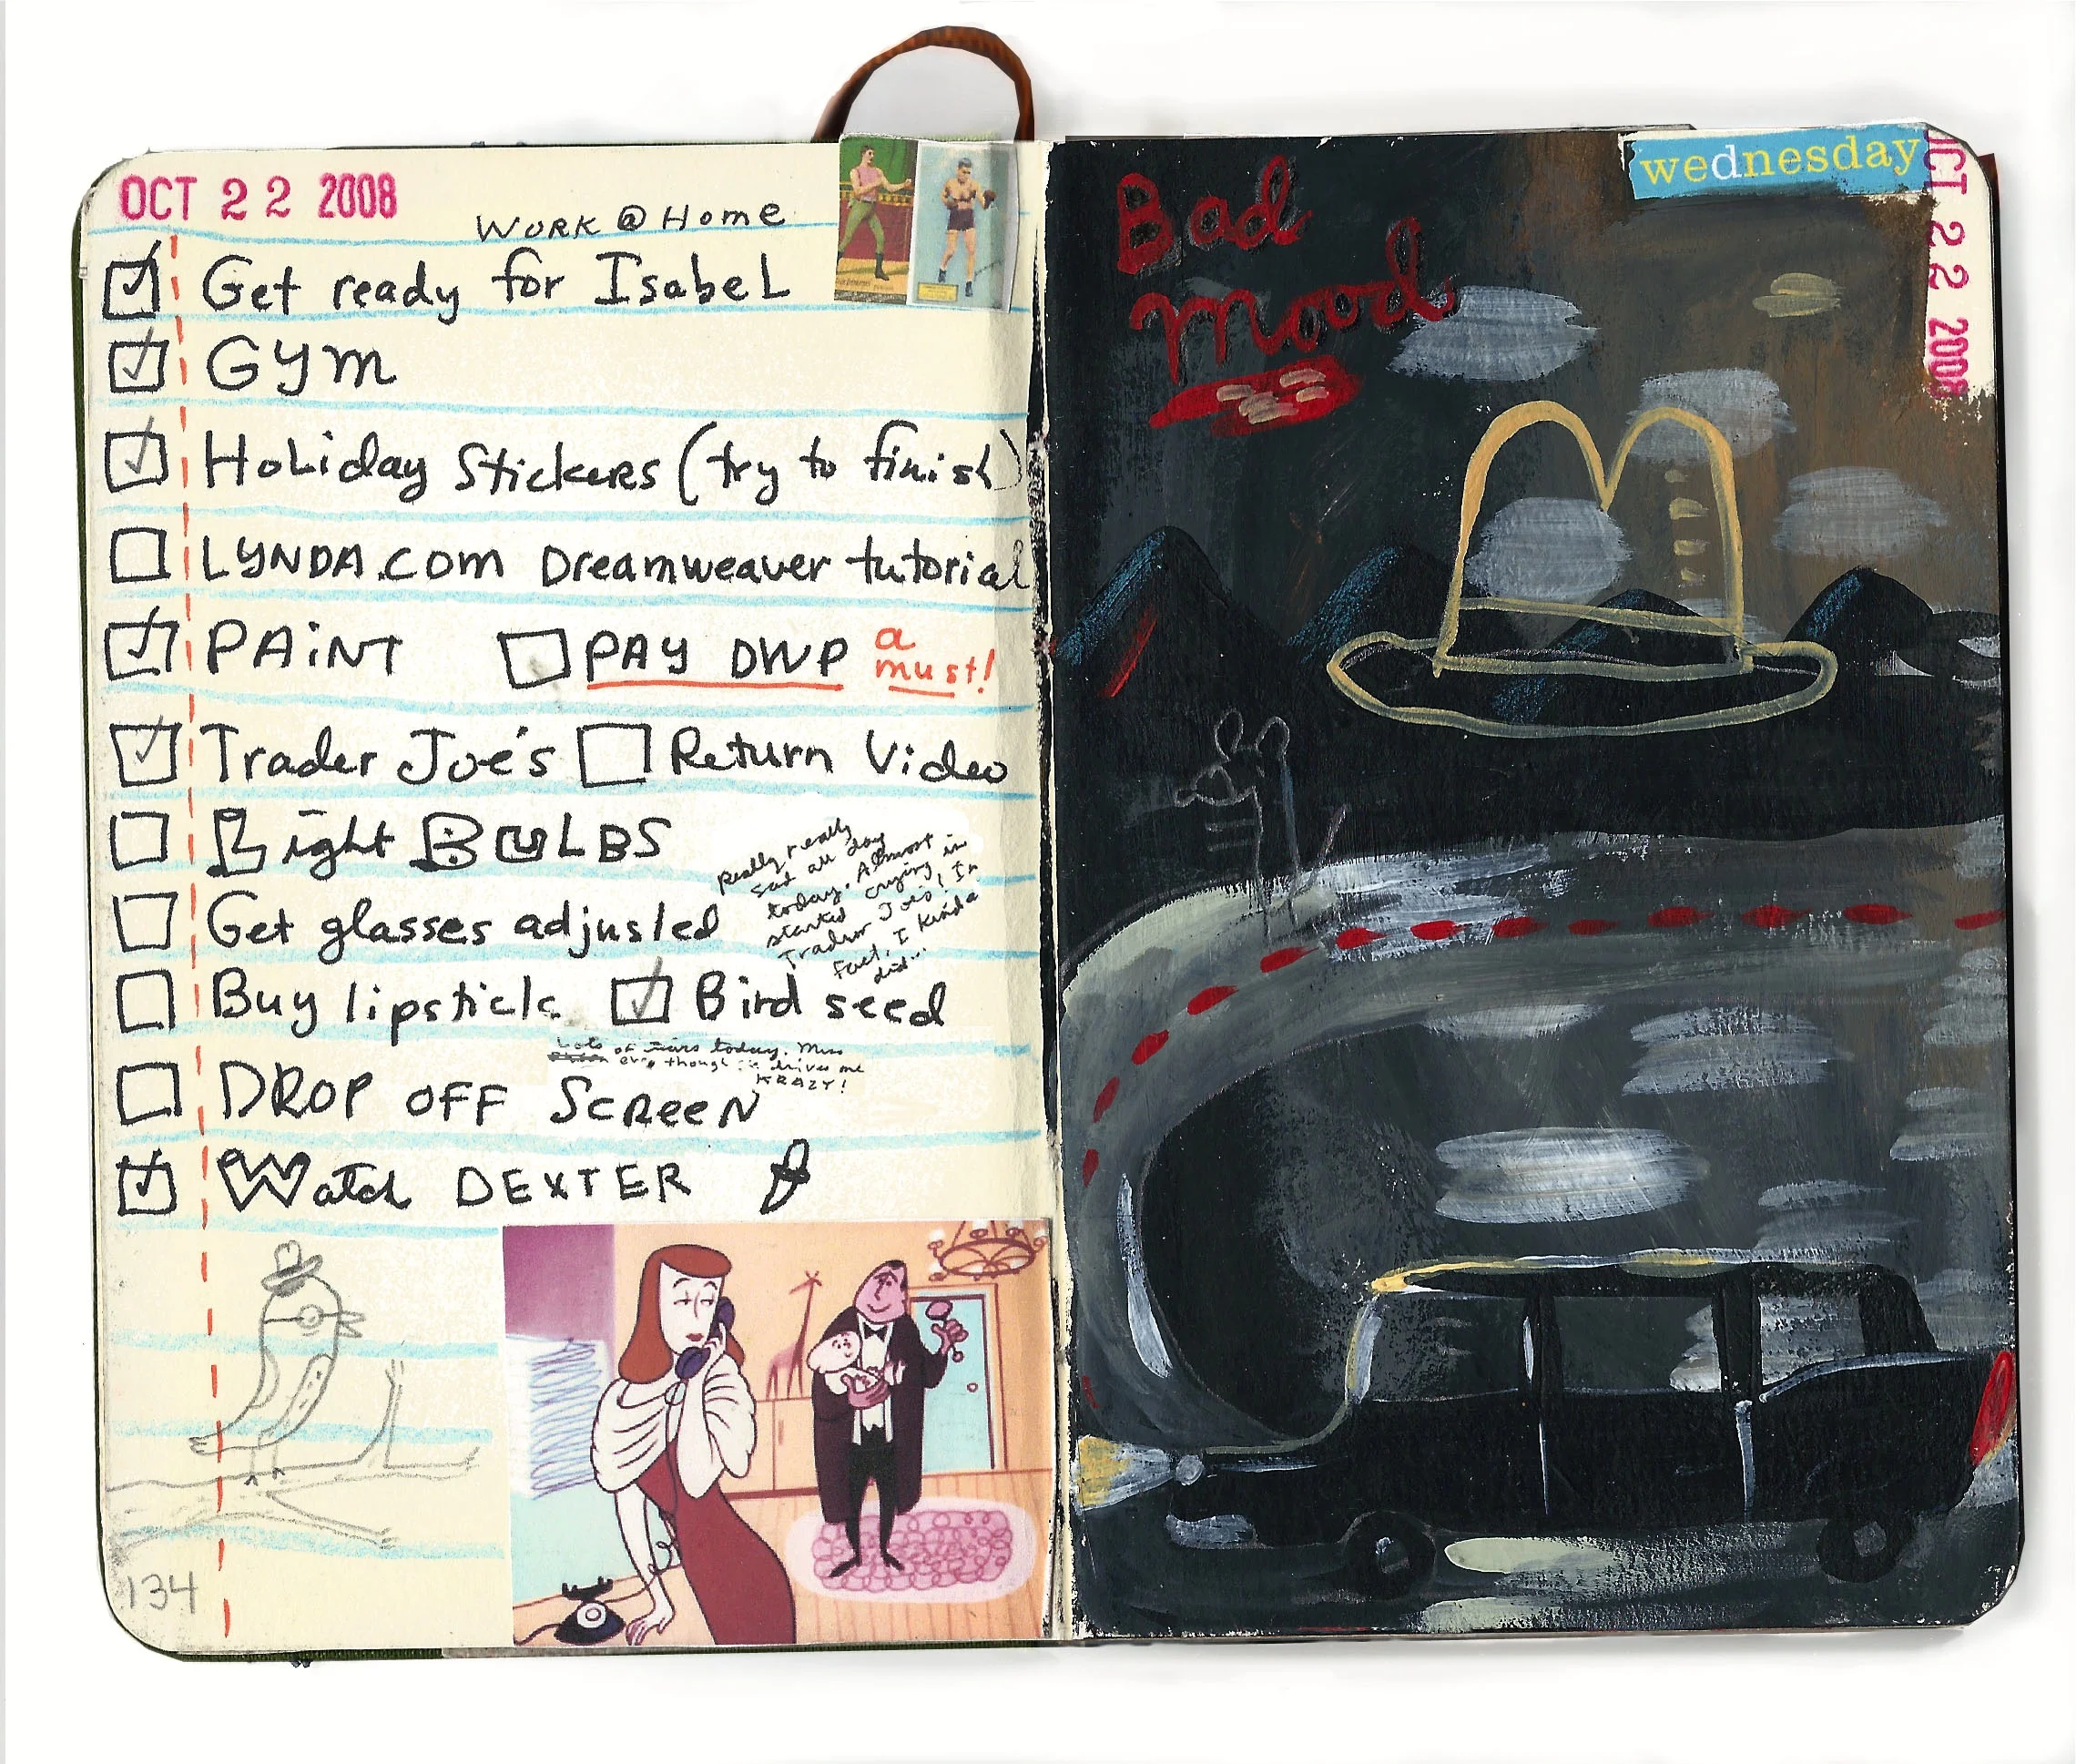 OCT 22 2008
WORK @ Home
Get ready for IsabeL
GYM
HoLiday Stickers (try to finish)
LYNDA.com Dreamweaver tutorial
PAiNT PAY DWP a must!
Trader Joe's Return Video
Light BULBS
Really really
sad all day
today. Almost
started crying in
Trader Joe's, In
fact, I kinda
did...
Get glasses adjusted
Buy lipstick Bird seed
Lots of tears today. Miss
even though he drives me
KRAZY!
DROP OFF ScReeN
Watch DEXTER
134
Bad
Mood
wednesday
OCT 22 2008